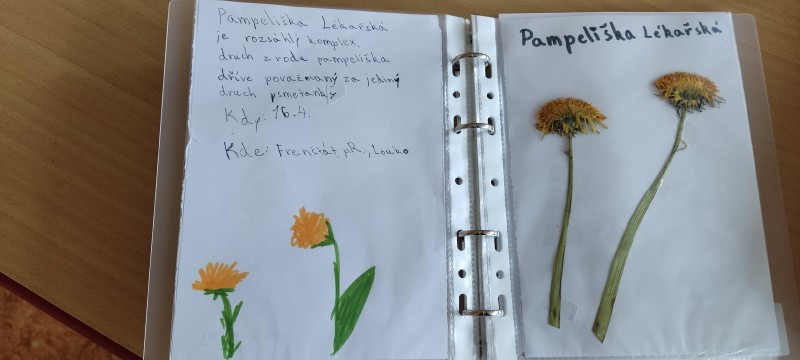 Pampeliška Lékařská
je rozsáhlý komplex.
druh z rodu pampeliška
dříve považovaný za jediný
druch psmetanky
Kdy: 16.4.
Kde: Frenštát p.R., Louka
Pampeliška Lékařská